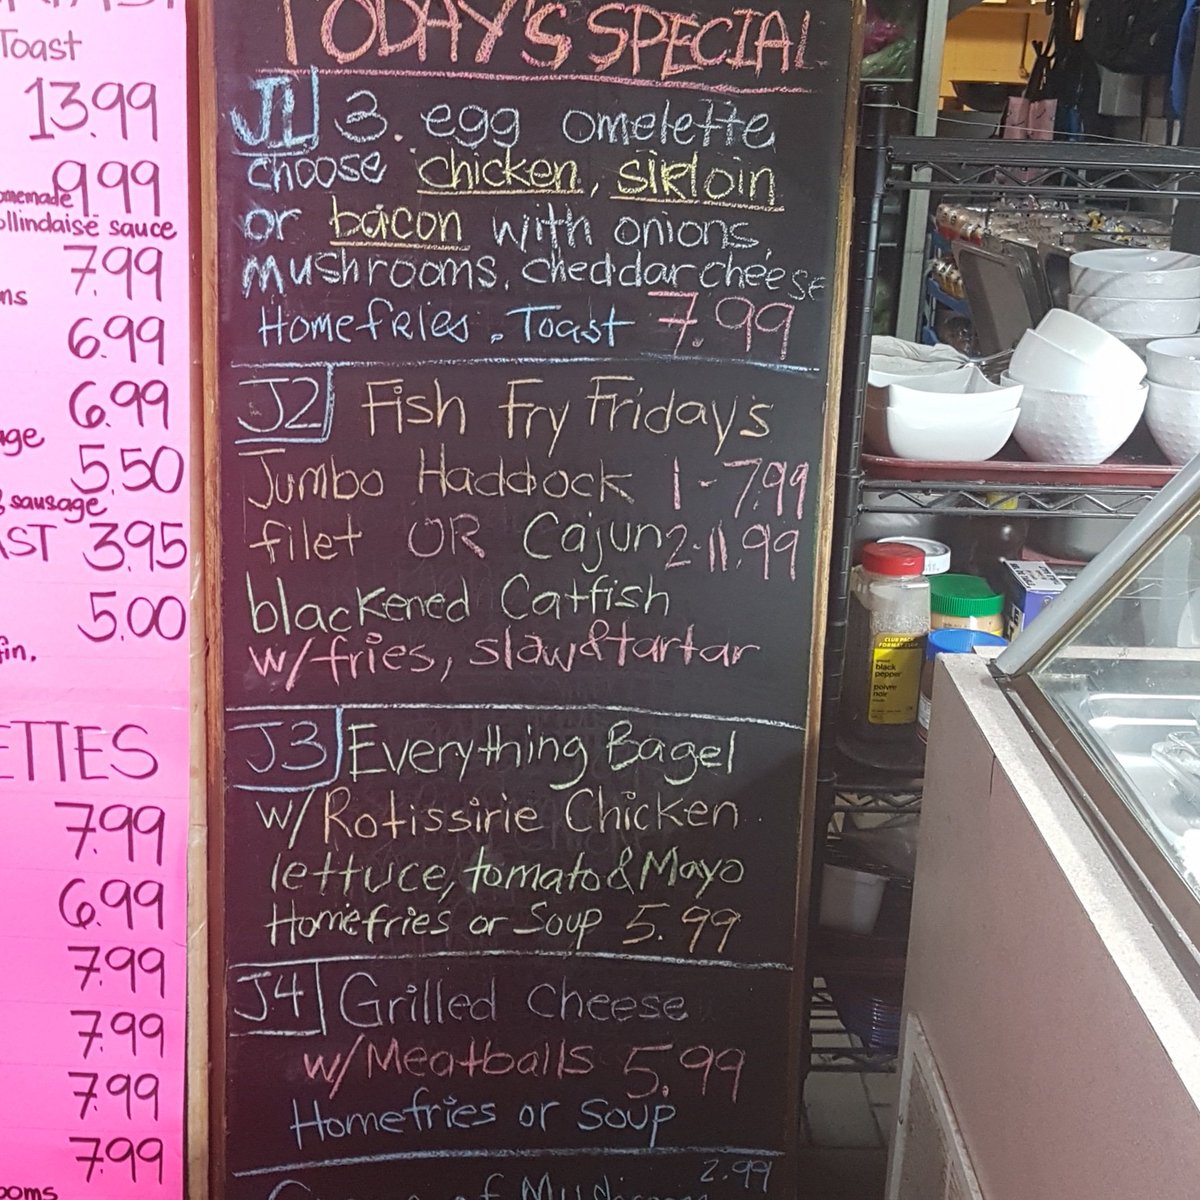 Toast
13.99
9.99
omemade
ollindaise sauce
7.99
ns
6.99
6.99
age
5.50
& sausage
AST 3.95
5.00
fin.
ETTES
7.99
6.99
7.99
7.99
7.99
7.99
ooms
TODAY'S SPECIAL
J1 3. egg omelette
choose chicken, sirloin
or bacon with onions,
mushrooms, cheddar cheese
Homefries. Toast 7.99
J2 Fish Fry Friday's
Jumbo Haddock 1-7.99
filet OR Cajun 2-11.99
blackened Catfish
w/fries, slaw & tartar
J3 Everything Bagel
w/Rotissirie Chicken
lettuce, tomato & Mayo
Homefries or Soup 5.99
J4 Grilled Cheese
w/Meatballs 5.99
Homefries or Soup
2.99
CLUB PACK
FORMAT CLUB
black
pepper
poivre
noir